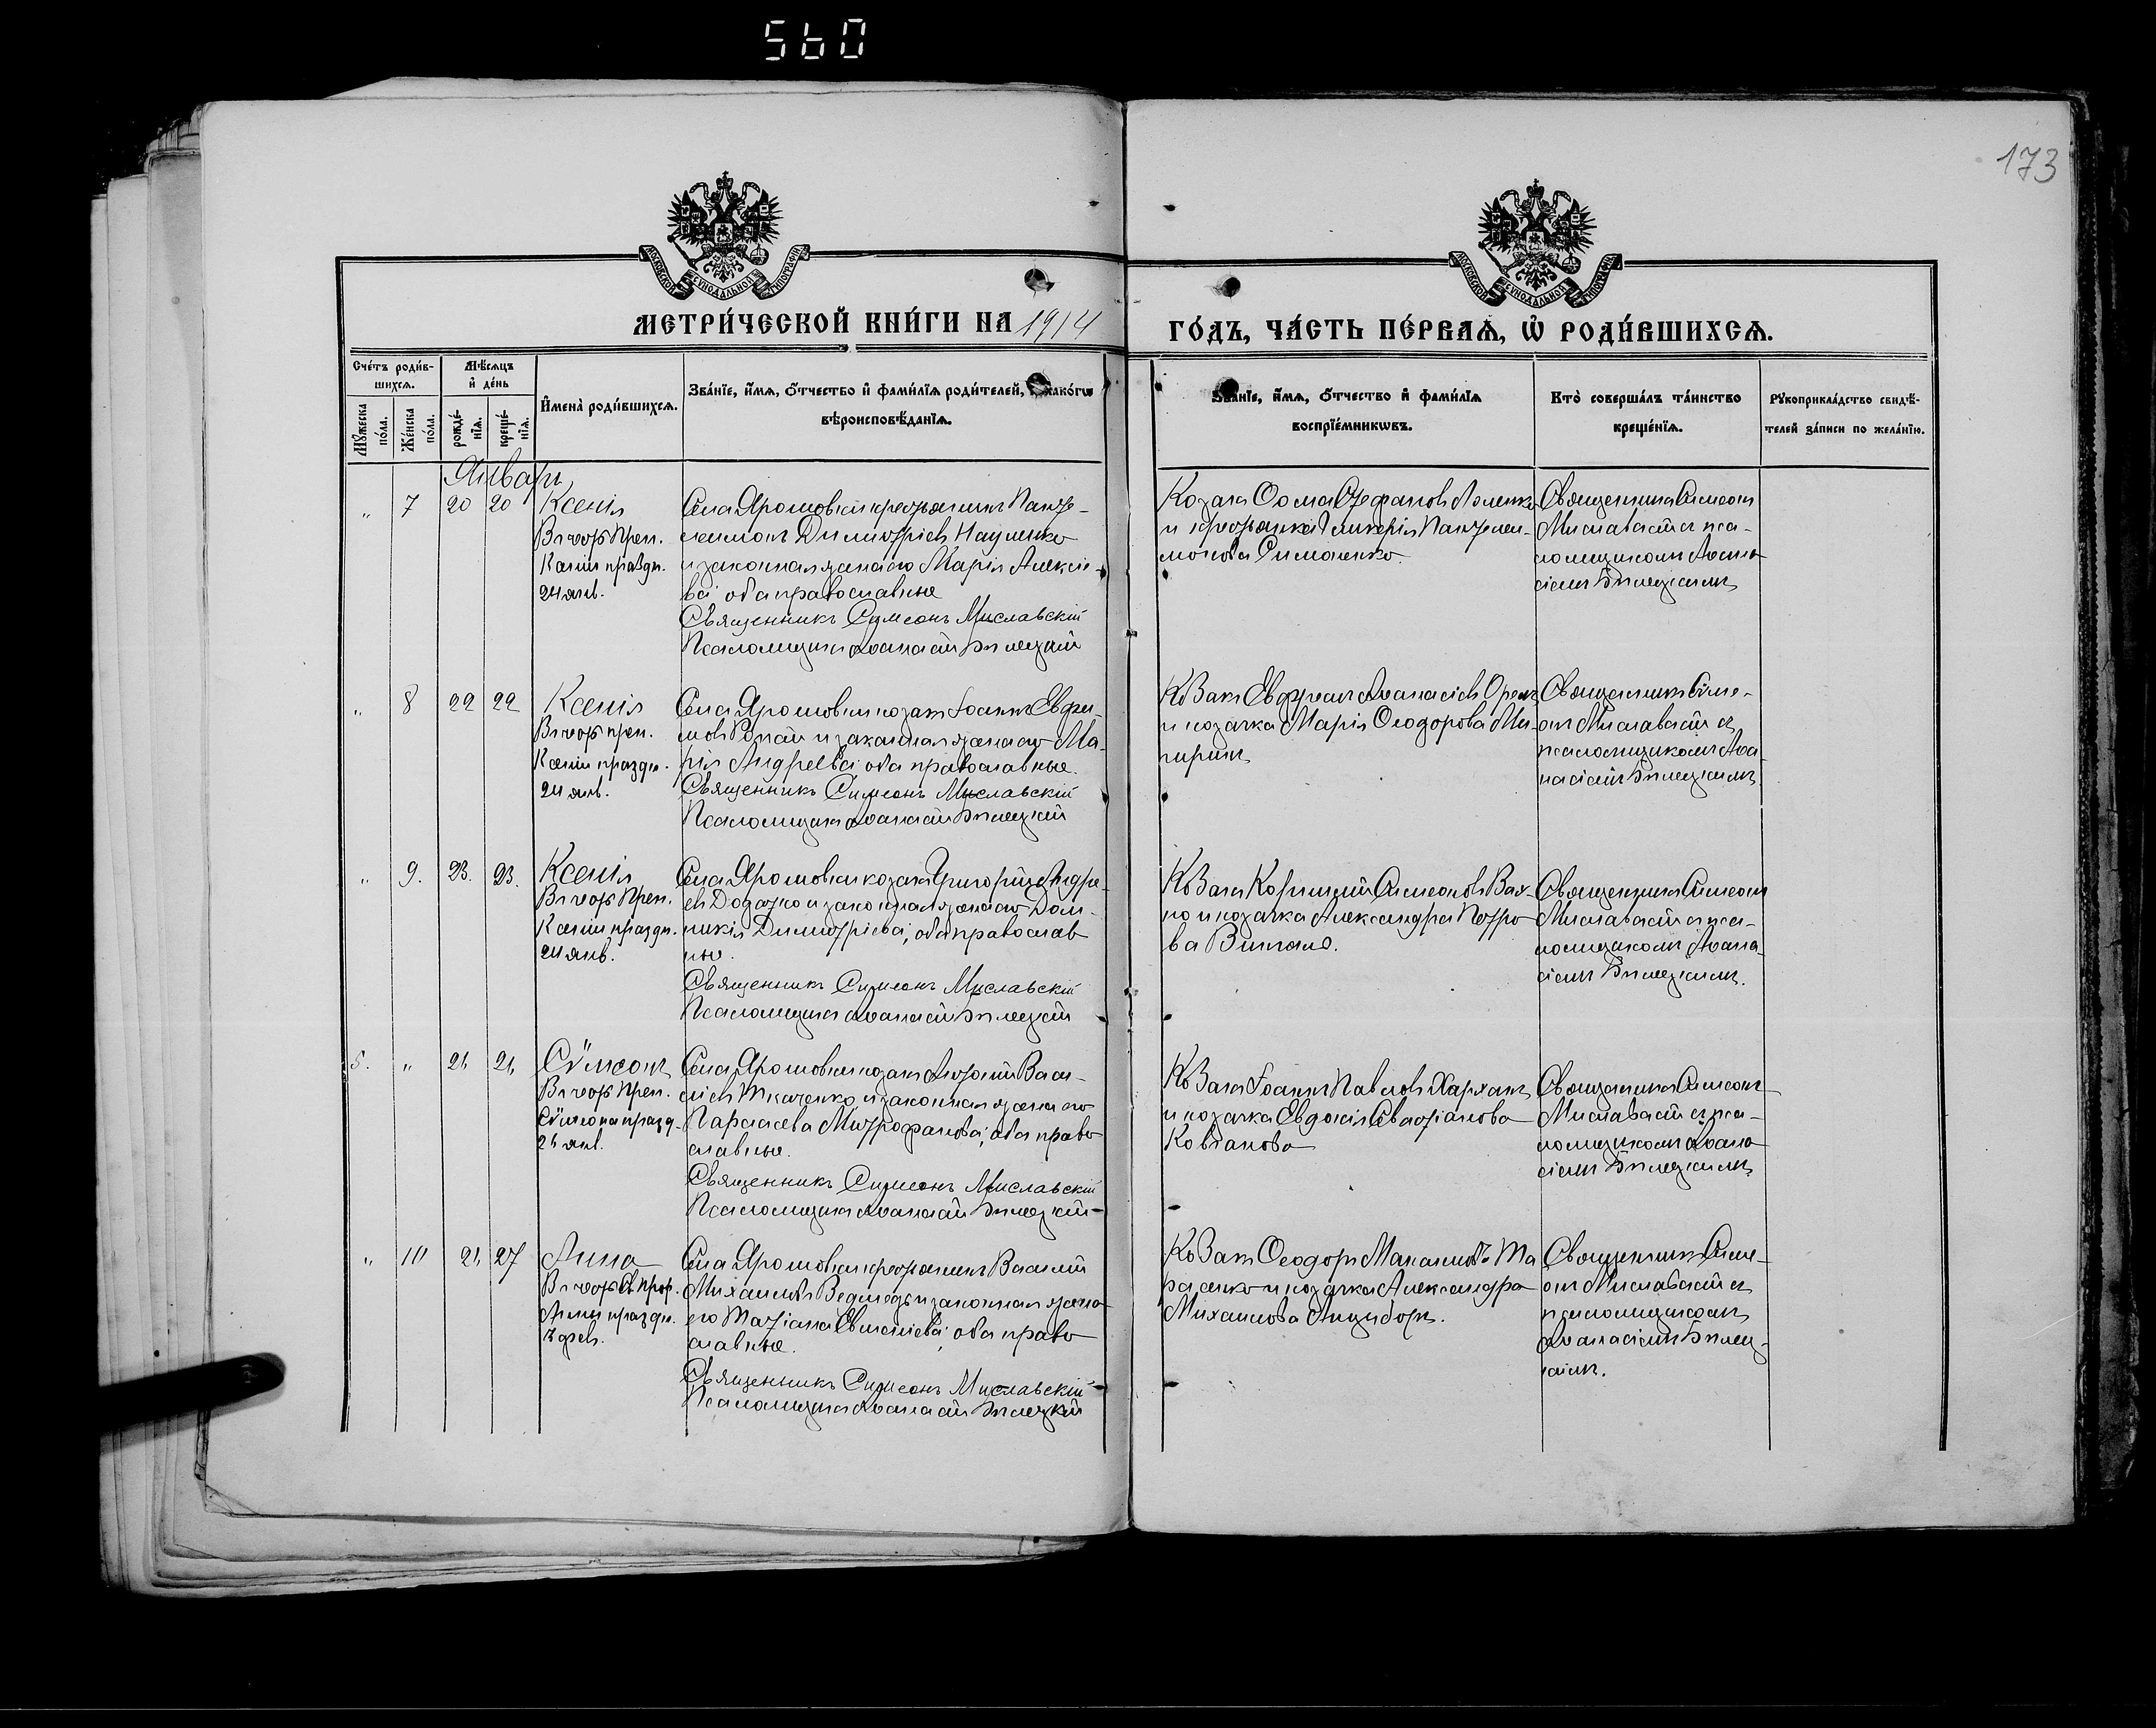 560
173
МЕТРИ́ЧЕСКОЙ КНИ́ГИ НА 1914
ГО́ДЪ, ЧА́СТЬ ПЕ́РВАѦ, Ѡ҆ РОДИ́ВШИХСѦ.
Сче́тъ роди́в-
шихсѧ.
Мѣ́сѧцъ
и҆ де́нь
Мꙋ́жеска
по́ла.
Же́нска
по́ла.
рожде́-
нїѧ.
креще́-
нїѧ.
И҆мена̀ роди́вшихсѧ.
Зва́нїе, и҆́мѧ, ѻ҆́тчество и҆ фами́лїѧ роди́телей,
вѣроисповѣ́данїѧ.
Зва́нїе, и҆́мѧ, ѻ҆́тчество и҆ фами́лїѧ
воспрїе́мникѡвъ.
Кто̀ соверша́лъ та́инство
креще́нїѧ.
Рꙋкоприкла́дство свидѣ́-
телей за́писи по жела́нїю.
Январь
„ 7 20 20
Ксенія
Въ честь Преп.
Ксеніи праздн.
24 янв.
Села Ярошовки крестьянинъ Панте-
леимонъ Димитріевъ Науменко
и законная жена его Марія Алексіе-
ва оба православные
Священникъ Симеонъ Миславскій
Псаломщикъ Аѳанасій Бѣлецкій
Козакъ Ѳома Стефановъ
и крестьянка Гликерія Пантелеи-
монова Симоненко.
Священникъ Симеонъ
Миславскій съ пса-
ломщикомъ Аѳана-
сіемъ Бѣлецкимъ
„ 8 22 22
Ксенія
Въ честь преп.
Ксеніи праздн.
24 янв.
Села Ярошовки козакъ Іоаннъ Евфи-
мовъ и законная жена его Ма-
рія Андреева оба православные.
Священникъ Симеонъ Миславскій
Псаломщикъ Аѳанасій Бѣлецкій
Козакъ Аѳанасіевъ
и козачка Марія Ѳеодорова
Священникъ Симе-
онъ Миславскій съ
псаломщикомъ Аѳа-
насіемъ Бѣлецкимъ
„ 9. 23. 23.
Ксенія
Въ честь Преп.
Ксеніи праздн.
24 янв.
Села Ярошовки козакъ Григорій Андре-
евъ и законная жена его Дом-
никія Димитріева, оба православ
ные.
Священникъ Симеонъ Миславскій
Псаломщикъ Аѳанасій Бѣлецкій
Козакъ Корнилій Симеоновъ
и козачка Александра Петро
ва
Священникъ Симеонъ
Миславскій съ пса-
ломщикомъ Аѳана-
сіемъ Бѣлецкимъ.
5. „
Сѵмеонъ
Въ честь Преп.
Сѵмеона празд-
янв.
Села Ярошовки козакъ Васи-
ліевъ Ткаченко и законная жена его
Параскева Митрофанова, оба право
славные.
Священникъ Симеонъ Миславскій
Псаломщикъ Аѳанасій Бѣлецкій
Козакъ Іоаннъ Павловъ
и козачка Евдокія
Священникъ Симеонъ
Миславскій съ пса-
ломщикомъ Аѳана
сіемъ Бѣлецкимъ
„ 10 27
Анна
Въ честь Св. прор.
Анны праздн.
фев.
Села Ярошовки крестьянинъ Василій
Михаиловъ Ведмедь и законная жена
его Татіана оба право
славные.
Священникъ Симеонъ Миславскій
Псаломщикъ Аѳанасій Бѣлецкій
Козакъ Ѳеодоръ Та
расенко и козачка Александра
Михаилова
Священникъ Симе-
онъ Миславскій съ
псаломщикомъ
Аѳанасіемъ Бѣлец-
кимъ.